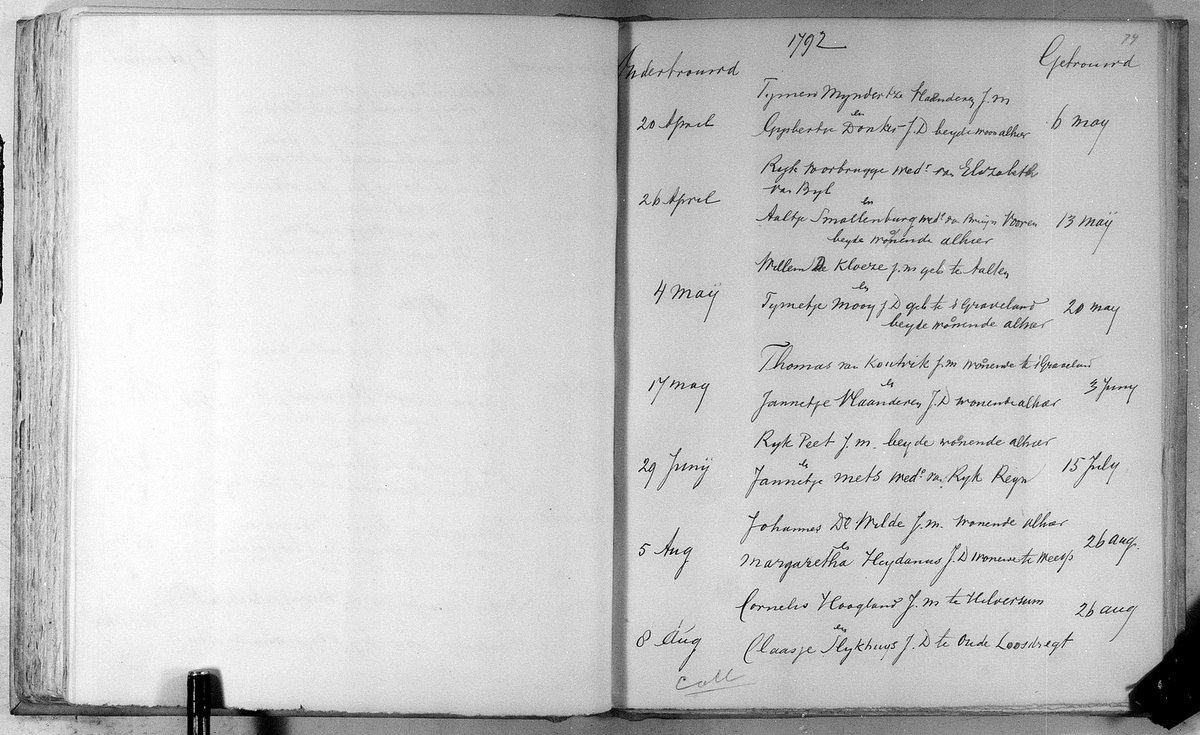 1792
79
Ondertrouwd
Getrouwd
Tymen Myndertze Vlaanderen J.m
en
20 April
Gysbertje Donker J.D beyde woon alhier
6 may
Ryk Voorbrugge wedr van Elizabeth
van Byl
26 April
en
Aaltje Smallenburg wede van Bruyn Vooren
13 maÿ
beyde woonende alhier
Willem De Kloeze j.m geb te Aalten
4 maÿ
en
Tymetje Mooy j.D geb te sGraveland
20 may
beyde woonende alhier
Thomas van Koutrik j.m woonende te sGraveland
17 may
en
3 Juny
Jannetje Vlaanderen J.D woonende alhier
Ryk Peet J.m. beyde woonende alhier
29 Junÿ
en
15 July
Jannetje Mets wede van Ryk Reyn
Johannes De Wilde J.m. woonende alhier
5 Aug
en
26 aug.
Margaretha Heydanus J.D woonende te Weesp
Cornelis Hoogland J.m te Hilversum
26 aug
8 Aug
en
Claasje Slykhuys J.D te Oude Loosdregt
Coll